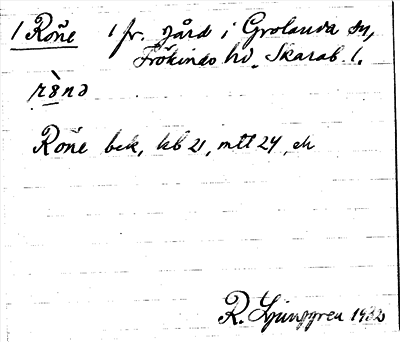 1 Röne 1 fr. gård i Grolanda sn,
Frökinds hd. Skarab. l.
rö̀nə
Röne bck, kb 21, mtl 24, ck
R. Ljunggren 1932